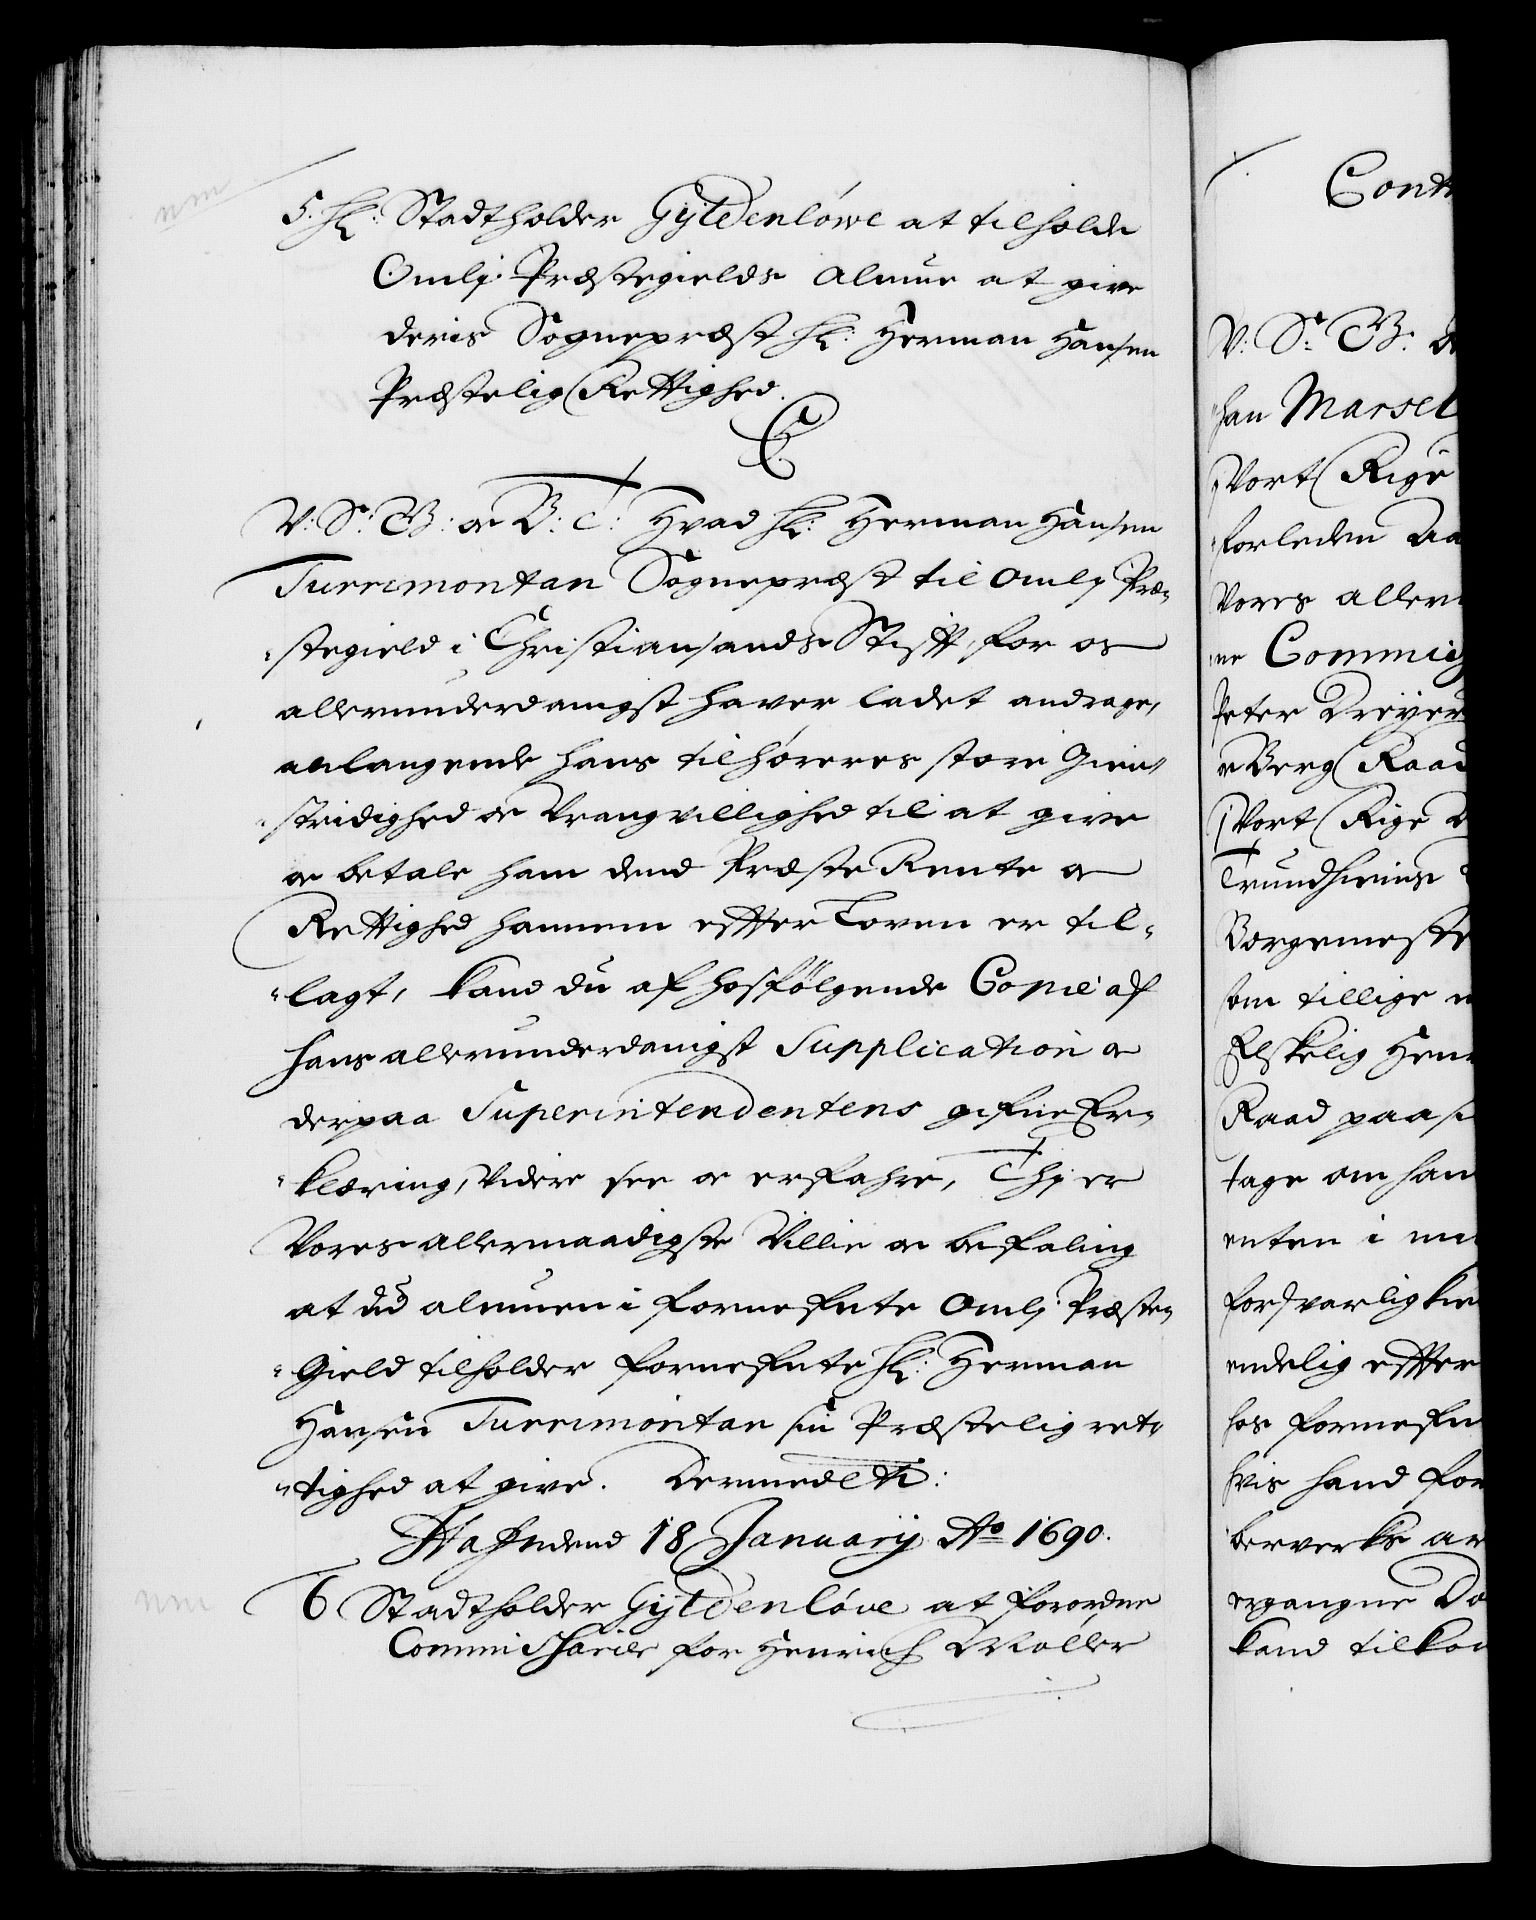 5. Hr: Stadtholder Gyldenlöwe at tilholde
Omlj Præstegields Almue at give
deris Sognepræst Hr: Herman Hansen
Præstelig Rettighed.
C
V: S: G: oc B: T: Hvad Hr: Herman Hansen
Turremontan Sognepræst til Omlj Præ-
stegield i Christiansands Stift, for os
allerunderdanigst haver ladet andrage,
anlangende hans tilhöreres store Gien-
stridighed oc Vrangvillighed til at give
oc betale ham dend Præste Rente oc
Rettighed hannem effter Loven er til-
lagt, kand du af hosfölgende Copie af
hans allerunderdanigst Supplication oc
derpaa Superintendentens gifne Er-
klæring, videre see oc erfahre, Thj er
Vores allernaadigste Villie oc befaling
at du almuen i fornefnte Omlj Præste-
Gield tilholder fornefnte Hr: Herman
Hansen Turremontan sin Præstelig ret-
tighed at give. Dermed etc:
Hafniæ dend 18 January Ao 1690.
6 Stadtholder Gyldenlöve at forordne
Commissarier for Henrich Möller
Cont
V: S: G:
han Marsel
Vort Rige
forleden Aa
Vores aller
ne Commiss
Peter Dreyer
oc Berg Raad
Vort Rige
Trundhiems
Borgemeste
som tillige
Elskelig Hen
Raad paa
tage om han
enten i
forsvarlig
endelig effter
hos fornefn
hvis hand for
berverks ar
ergangne Do
kand tilkom